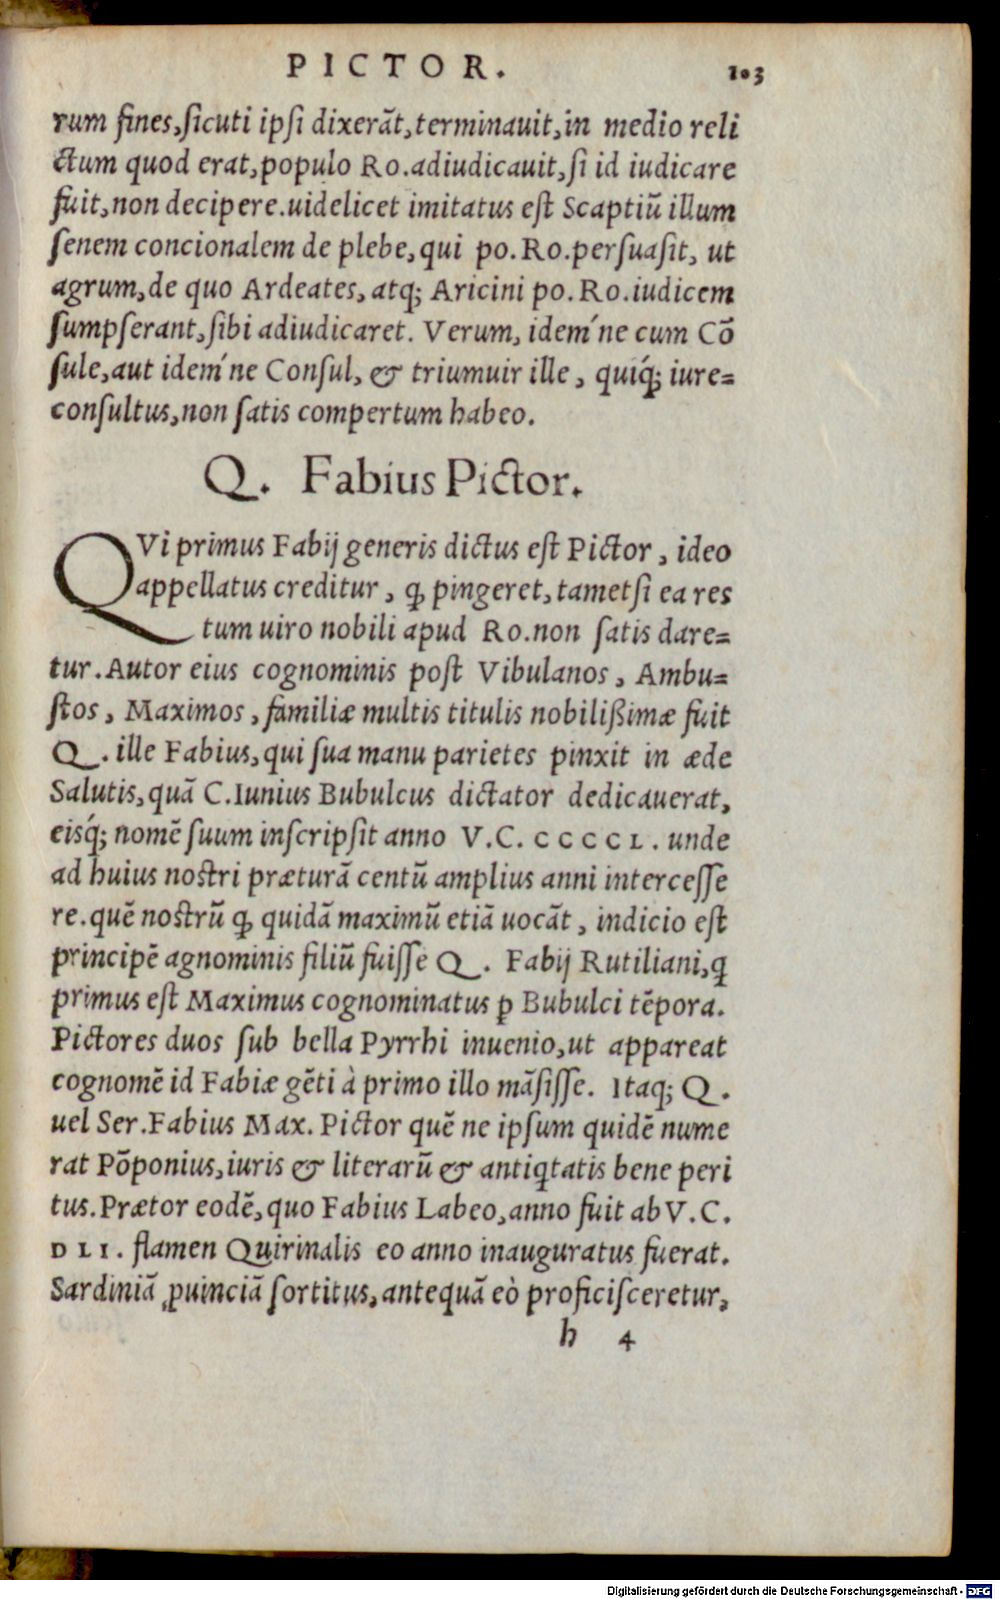 PICTOR. 103
rum fines, sicuti ipsi dixerãt, terminauit, in medio reli
ctum quod erat, populo Ro. adiudicauit, si id iudicare
fuit, non decipere. uidelicet imitatus est Scaptiũ illum
senem concionalem de plebe, qui po. Ro. persuasit, ut
agrum, de quo Ardeates, atq; Aricini po. Ro. iudicem
sumpserant, sibi adiudicaret. Verum, idem´ne cum Cõ
sule, aut idem´ne Consul, & triumuir ille, quiq́; iure=
consultus, non satis compertum habeo.
Q. Fabius Pictor.
QVi primus Fabij generis dictus est Pictor, ideo
appellatus creditur, ꝙ pingeret, tametsi ea res
tum uiro nobili apud Ro. non satis dare=
tur. Autor eius cognominis post Vibulanos, Ambu=
stos, Maximos, familiæ multis titulis nobilißimæ fuit
Q. ille Fabius, qui sua manu parietes pinxit in æde
Salutis, quã C. Iunius Bubulcus dictator dedicauerat,
eisq́; nomẽ suum inscripsit anno V.C. CCCCL. unde
ad huius nostri præturã centũ amplius anni intercesse
re. quẽ nostrũ ꝙ quidã maximũ etiã uocãt, indicio est
principẽ agnominis filiũ fuisse Q. Fabij Rutiliani, q
primus est Maximus cognominatus ꝑ Bubulci tẽpora.
Pictores duos sub bella Pyrrhi inuenio, ut appareat
cognomẽ id Fabiæ gẽti à primo illo mãsisse. Itaq; Q.
uel Ser. Fabius Max. Pictor quẽ ne ipsum quidẽ nume
rat Põponius, iuris & literarũ & antiqtatis bene peri
tus. Prætor eodẽ, quo Fabius Labeo, anno fuit ab V.C.
DLI. flamen Quirinalis eo anno inauguratus fuerat.
Sardiniã ꝓuinciã sortitus, antequã eò proficisceretur,
h 4
Digitalisierung gefördert durch die Deutsche Forschungsgemeinschaft - DFG